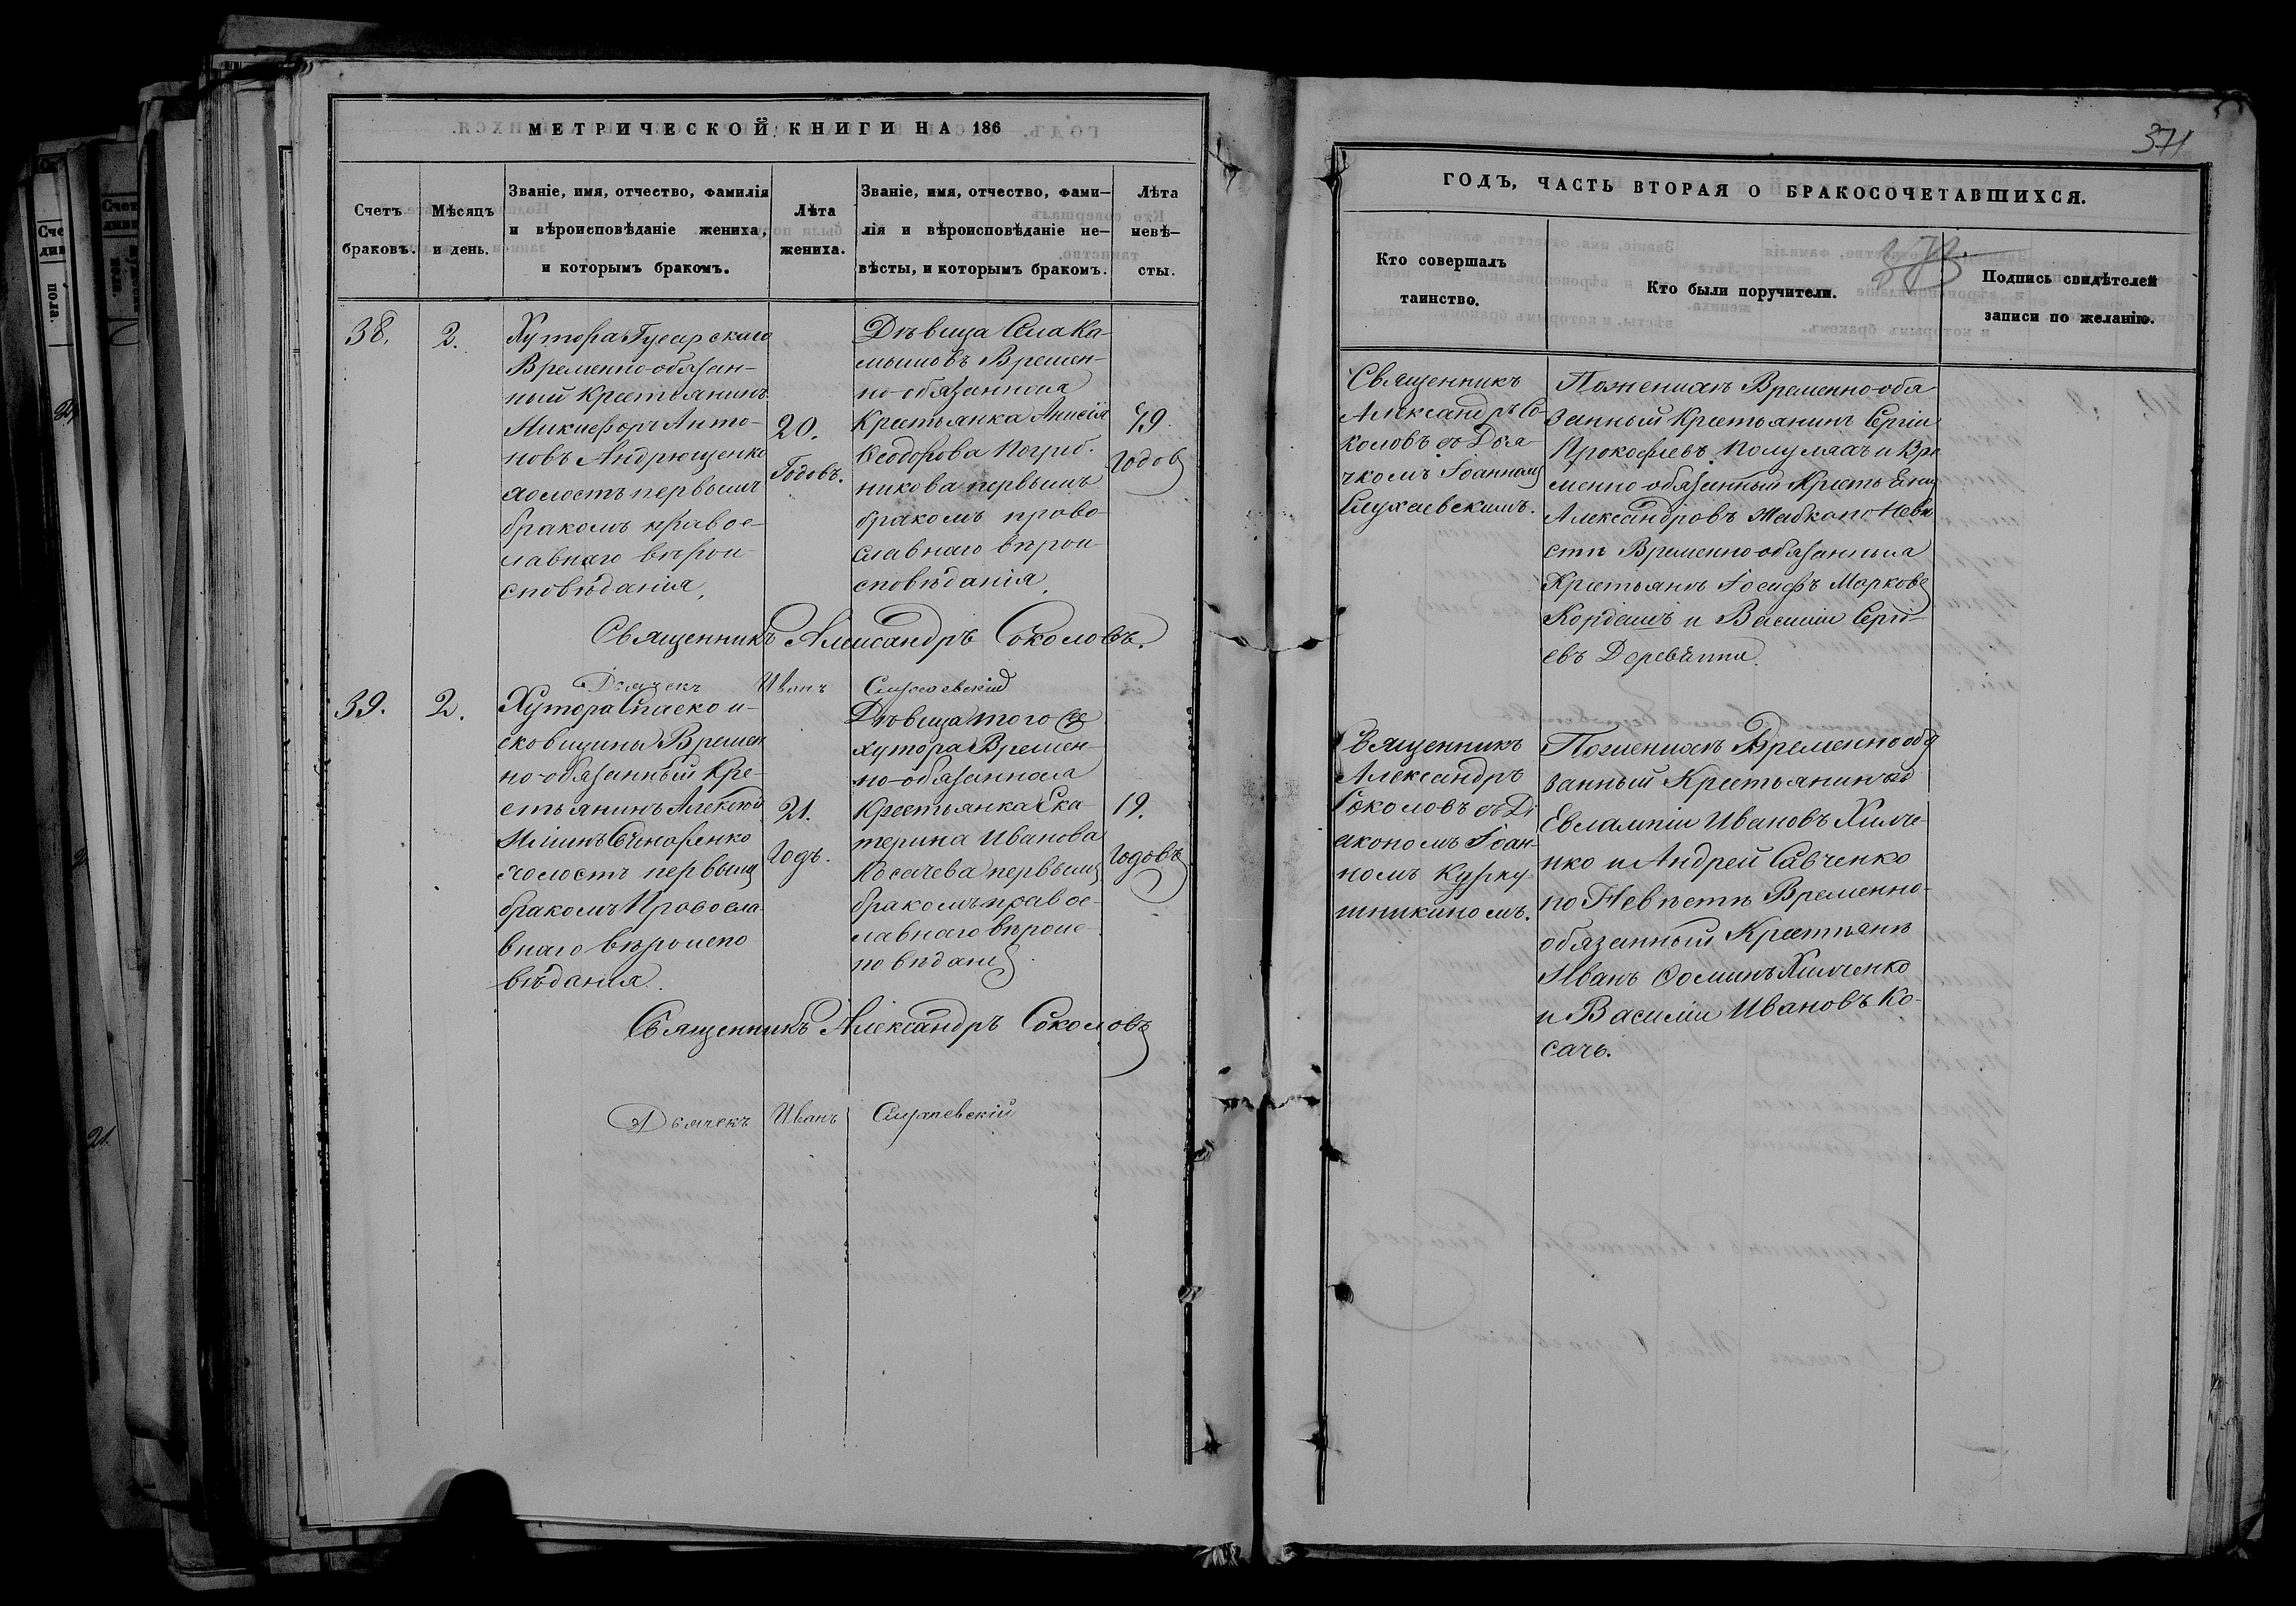 МЕТРИЧЕСКОЙ КНИГИ НА 186
Счетъ браковъ.
Мѣсяцъ и день.
Званіе, имя, отчество, фамилія
и вѣроисповѣданіе жениха,
и которымъ бракомъ.
Лѣта
жениха.
Званіе, имя, отчество, фами—
лія и вѣроисповѣданіе не—
вѣсты, и которымъ бракомъ.
Лѣта
невѣ—
сты.
38.
2.
Хутора Гусарскаго
Временно-обязан-
ный Крестьянинъ
Никифоръ Анто-
новъ Андрющенко
холостъ первымъ
бракомъ правос-
лавнаго вѣрои-
сповѣданія,
20.
Годовъ.
Дѣвица Села Ка-
мышовъ Времен-
но-обязанная
Крестьянка Анисія
Ѳеодорова Погриб-
никова первымъ
бракомъ право-
славнаго вѣрои-
сповѣданія,
19
годовъ
Священникъ Александръ Соколовъ.
Дьячекъ Иванъ
39.
2.
Хутора
сковщины Времен
но-обязанный Кре-
стьянинъ Алексѣй
холостъ первымъ
бракомъ Правосла-
внаго вѣроиспо-
вѣданія.
21.
Годъ.
Дѣвица того же
хутора Времен-
но-обязанная
Крестьянка Ека-
терина Иванова
Косачева первымъ
бракомъ правос-
лавнаго вѣроис-
повѣданія
19.
годовъ
Священникъ Александръ Соколовъ
Дьячекъ Иванъ
371
ГОДЪ, ЧАСТЬ ВТОРАЯ О БРАКОСОЧЕТАВШИХСЯ.
Кто совершалъ
таинство.
Кто были поручители.
Подпись свидѣтелей
записи по желанію.
Священникъ
Александръ Со-
коловъ съ Дья-
чкомъ Іоанномъ
По женихѣ Временно-обя-
занный Крестьянинъ Сергій
Прокофьевъ и Вре
менно-обязанный Крестья
Александровъ по Невѣ
стѣ Временно-обязанныя
Крестьянъ Іосифъ Марковъ
Кордашъ и Василій Сергі-
евъ Деревянка.
Священникъ
Александръ
Соколовъ съ Ді
акономъ Іоан-
номъ Курку
шкинomъ.
По женихѣ Временно обя
занный Крестьянинъ
Евлампій Ивановъ Хильче
нко и Андрей Савченко
по Невѣстѣ Временно-
обязанный Крестьянъ
Иванъ Ѳоминъ Хильченко
и Василій Ивановъ Ко-
сачъ.